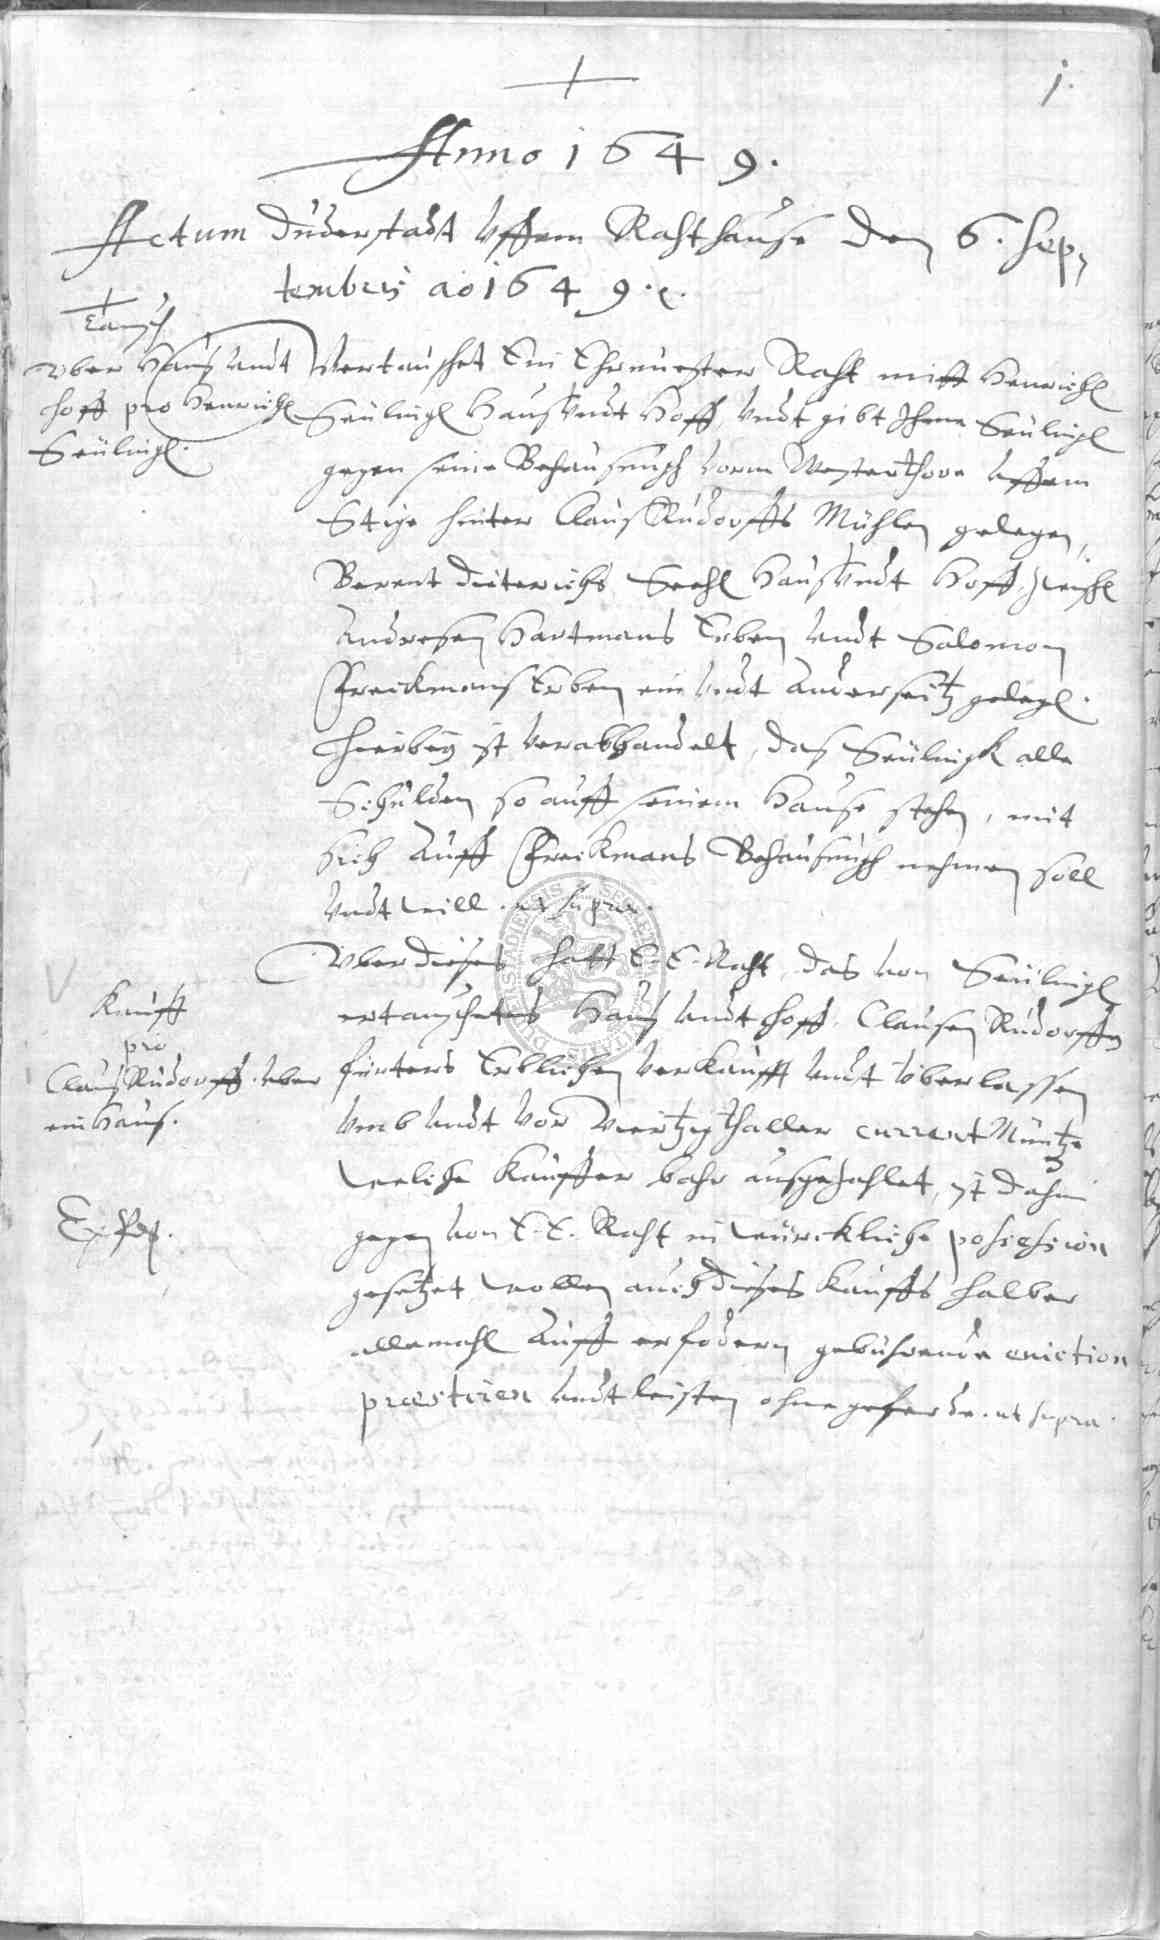 1.
Anno 1649.
Actum Duderstadt uffem Rahthause den 6. Sep-
tembris ao 1649.
Tausch
uber Hauß undt
Hoff pro Henrich
Seüling.
Vertauschet Ein Ehrnvester Raht mitt Henrich
Seüling Hauß undt Hoff, undt gibt Ihme Seüling
gegen seine Behausung vorm Westerthore uffem
Stige hinter Clauß Rudorffs Mühlen gelegen,
Berent Dieterichs Hauß undt Hoff, zwisch
Andresen Hartmans Erben undt Salomon
Freckmans Erben ein undt anderseitz gelegen.
Hierbey ist verabhandelt, das Seüling alle
Schulden so auff seinem Hause stehen, mit
sich auff Freckmans Behausung nehmen soll
undt will. ut supra.
Kauff
pro
Clauß Rudorff. uber
ein Hauß.
Uber dieses hatt E. E. Raht, das von Seüling
ertauschetes Hauß undt Hoff, Clausen Rudorffen
fürters Erblichen verkaufft undt überlassen
umb undt vor viertzig thaller current Müntze
welche Kauffer bahr ausgezahlet, ist dahin
gegen von E. E. Raht in würckliche possession
gesetzet wollen auch dieses Kauffs halber
allemahl auff erfodern gebührende eviction
præstiren undt leisten ohne geferde. ut supra.